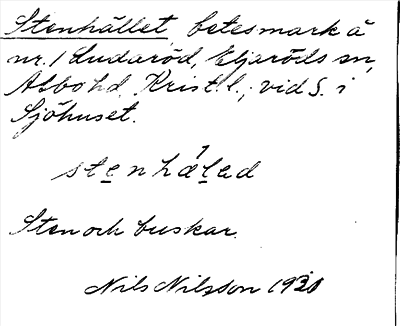 Stenhället, betesmark å
nr. 1 Ludaröd, Eljaröds sn,
Albo hd. Krist. l., vid S. i
Sjöhuset.
stenhälad
Sten och buskar.
Nils Nilsson 1931